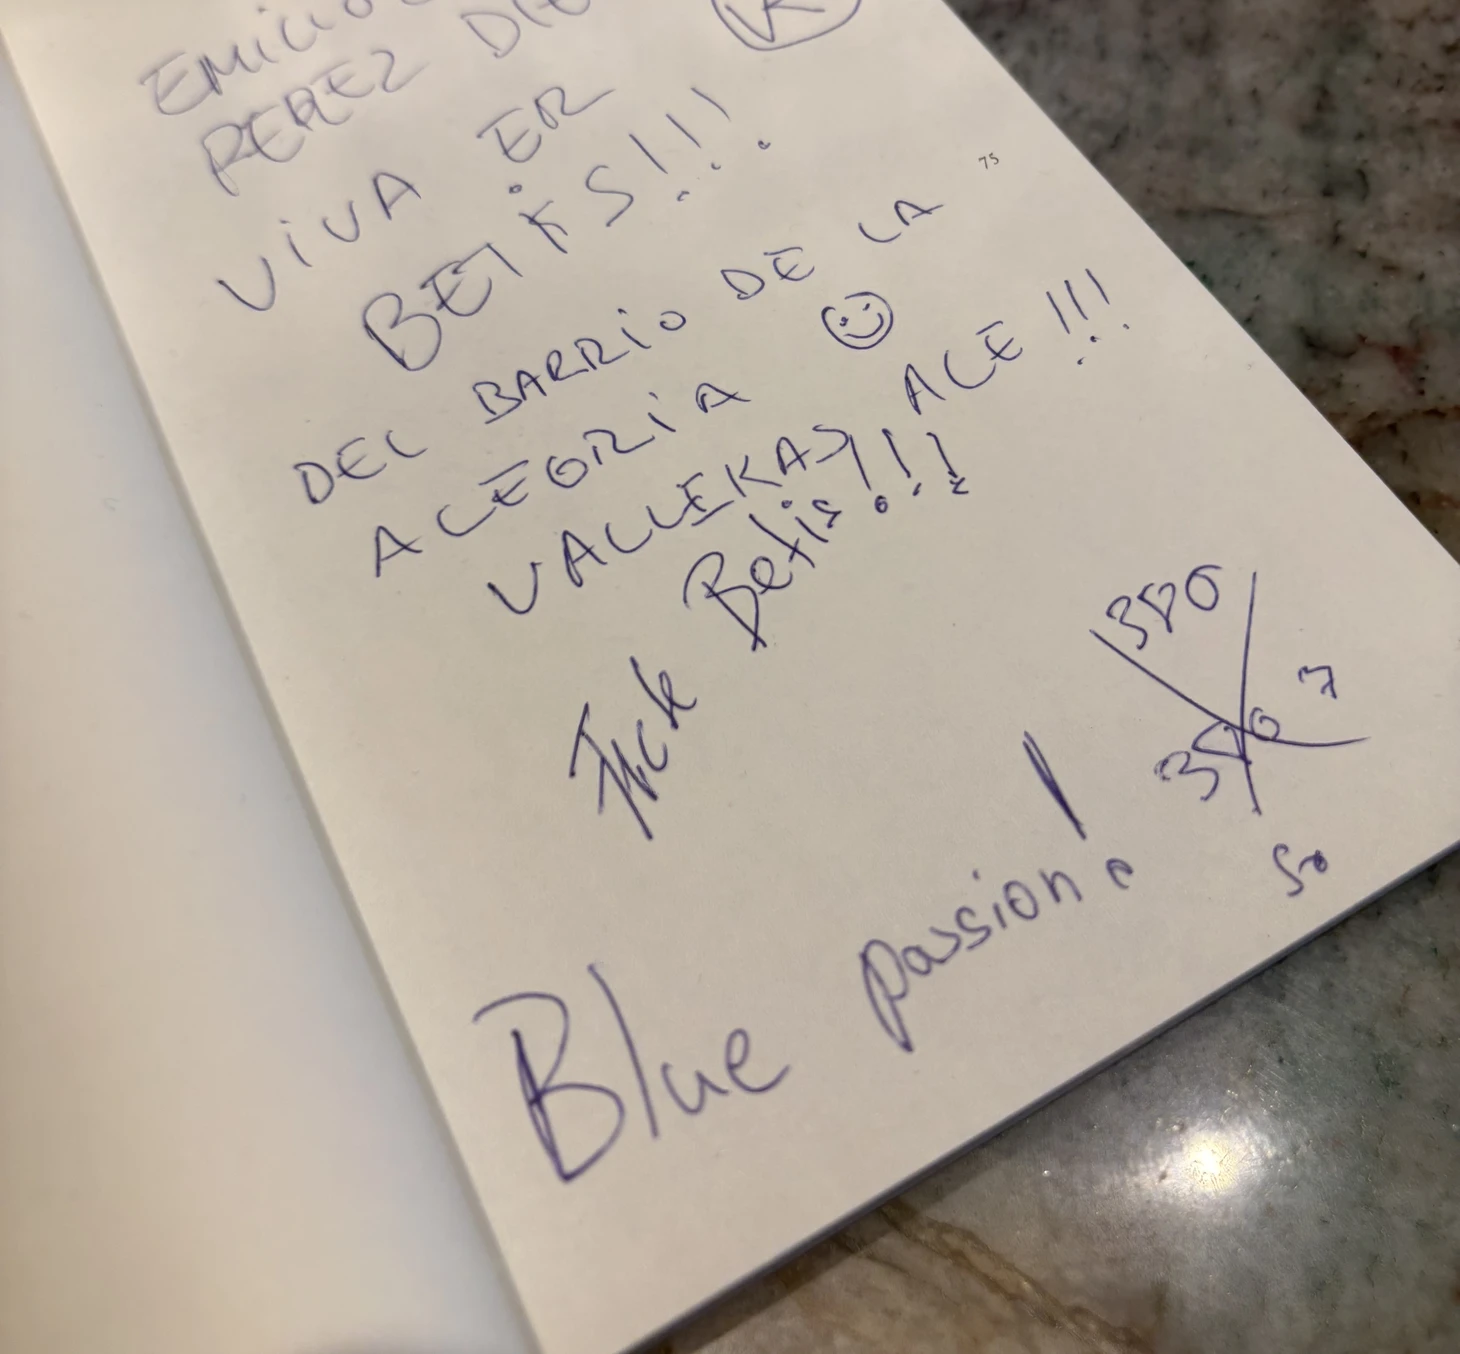 PEREZ
VIVA ER
BETIS!!!
75
DEL BARRIO DE LA
ALEGRIA
VALLEKAS ALE!!!
Betis!!!
Fuck
Blue passion!
350
7
350
50